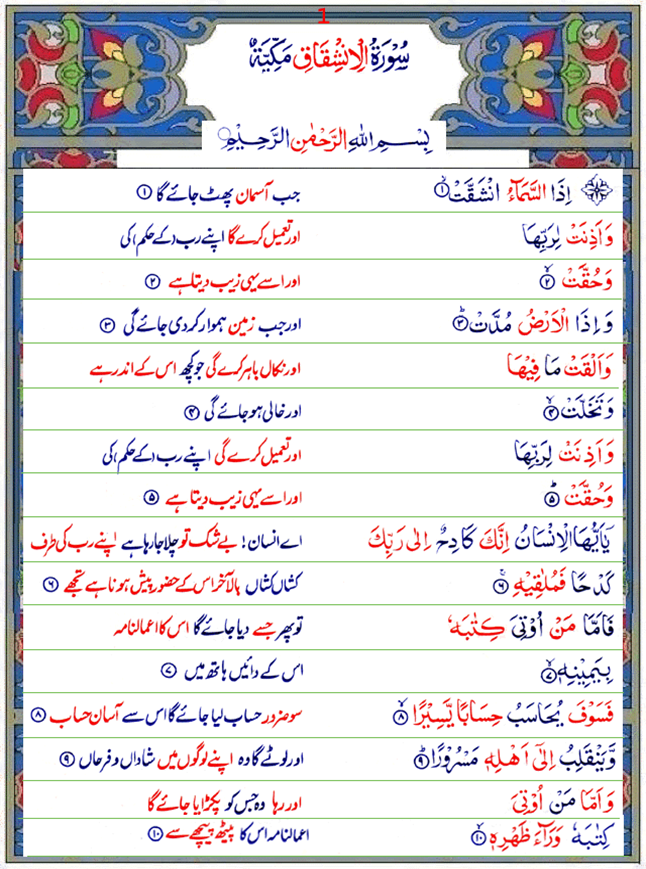 1
سُوْرَۃُ الْاِنْشِقَاقِ مَکِّیَّۃٌ
بِسْمِ اللّٰہِ الرَّحْمٰنِ الرَّحِیْمِ
اِذَا السَّمَآءُ انْشَقَّتْ ۙ۱ جب آسمان پھٹ جائے گا ۱
وَاَذِنَتْ لِرَبِّھَا اور تعمیل کرے گا اپنے رب (کے حکم) کی
وَحُقَّتْ ۙ۲ اور اسے یہی زیب دیتا ہے ۲
وَاِذَا الْاَرْضُ مُدَّتْ ؕ۳ اور جب زمین ہموار کردی جائے گی ۳
وَاَلْقَتْ مَا فِیْھَا اور نکال باہر کرے گی جو کچھ اس کے اندر ہے
وَتَخَلَّتْ ۙ۴ اور خالی ہو جائے گی ۴
وَاَذِنَتْ لِرَبِّھَا اور تعمیل کرے گی اپنے رب (کے حکم) کی
وَحُقَّتْ ؕ۵ اور اسے یہی زیب دیتا ہے ۵
یٰۤاَیُّھَا الْاِنْسَانُ اِنَّکَ کَادِحٌ اِلٰی رَبِّکَ اے انسان! بے شک تو چلا جا رہا ہے اپنے رب کی طرف
کَدْحًا فَمُلٰقِیْہِ ۚ۶ کشاں کشاں بالآخر اس کے حضور پیش ہونا ہے تجھے ۶
فَاَمَّا مَنْ اُوْتِیَ کِتٰبَہٗ تو پھر جسے دیا جائے گا اس کا اعمالنامہ
بِیَمِیْنِہٖ ۙ۷ اس کے دائیں ہاتھ میں ۷
فَسَوْفَ یُحَاسَبُ حِسَابًا یَّسِیْرًا ۙ۸ سو ضرور حساب لیا جائے گا اس سے آسان حساب ۸
وَّیَنْقَلِبُ اِلٰۤی اَھْلِہٖ مَسْرُوْرًا ؕ۹ اور لوٹے گا وہ اپنے لوگوں میں شاداں و فرحاں ۹
وَاَمَّا مَنْ اُوْتِیَ اور رہا وہ جس کو پکڑایا جائے گا
کِتٰبَہٗ وَرَآءَ ظَھْرِہٖ ۙ۱۰ اعمالنامہ اس کا پیٹھ پیچھے سے ۱۰